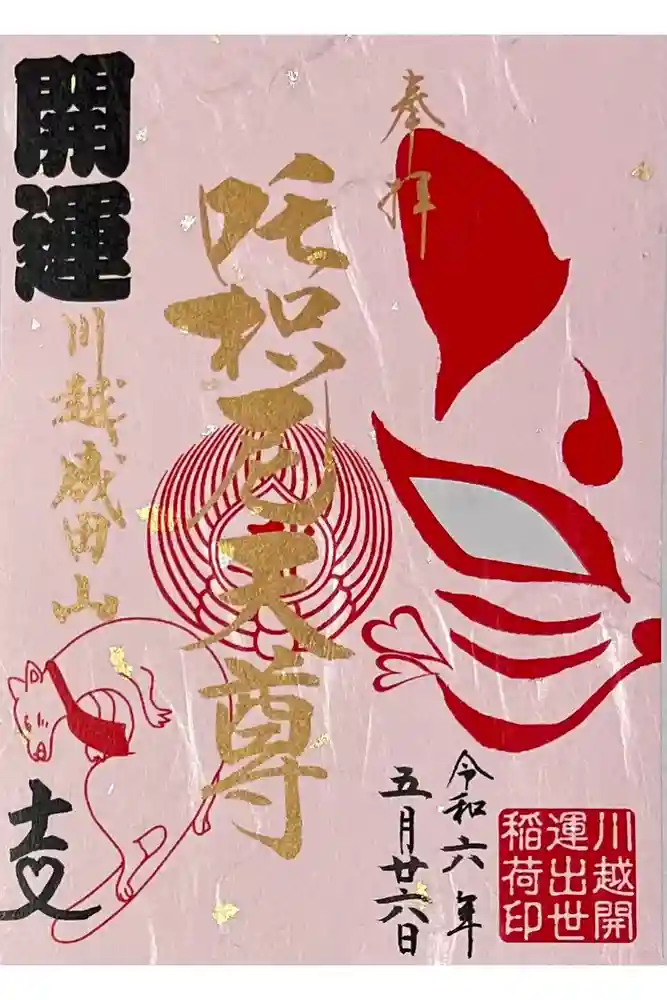 奉拝
吒枳尼天尊
開運
川越成田山
令和六年
五月廿六日
川越開
運出世
稲荷印